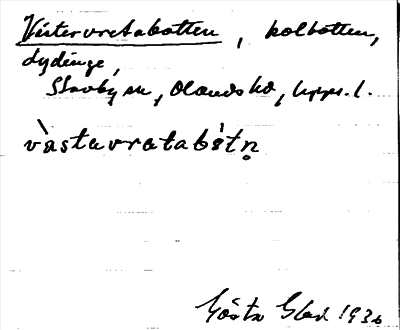 Västervretabotten, kolbotten,
Lydinge,
Stavby sn, Olands hd, Upps. l.
vàstavratabótn̥
Gösta Glad 1936